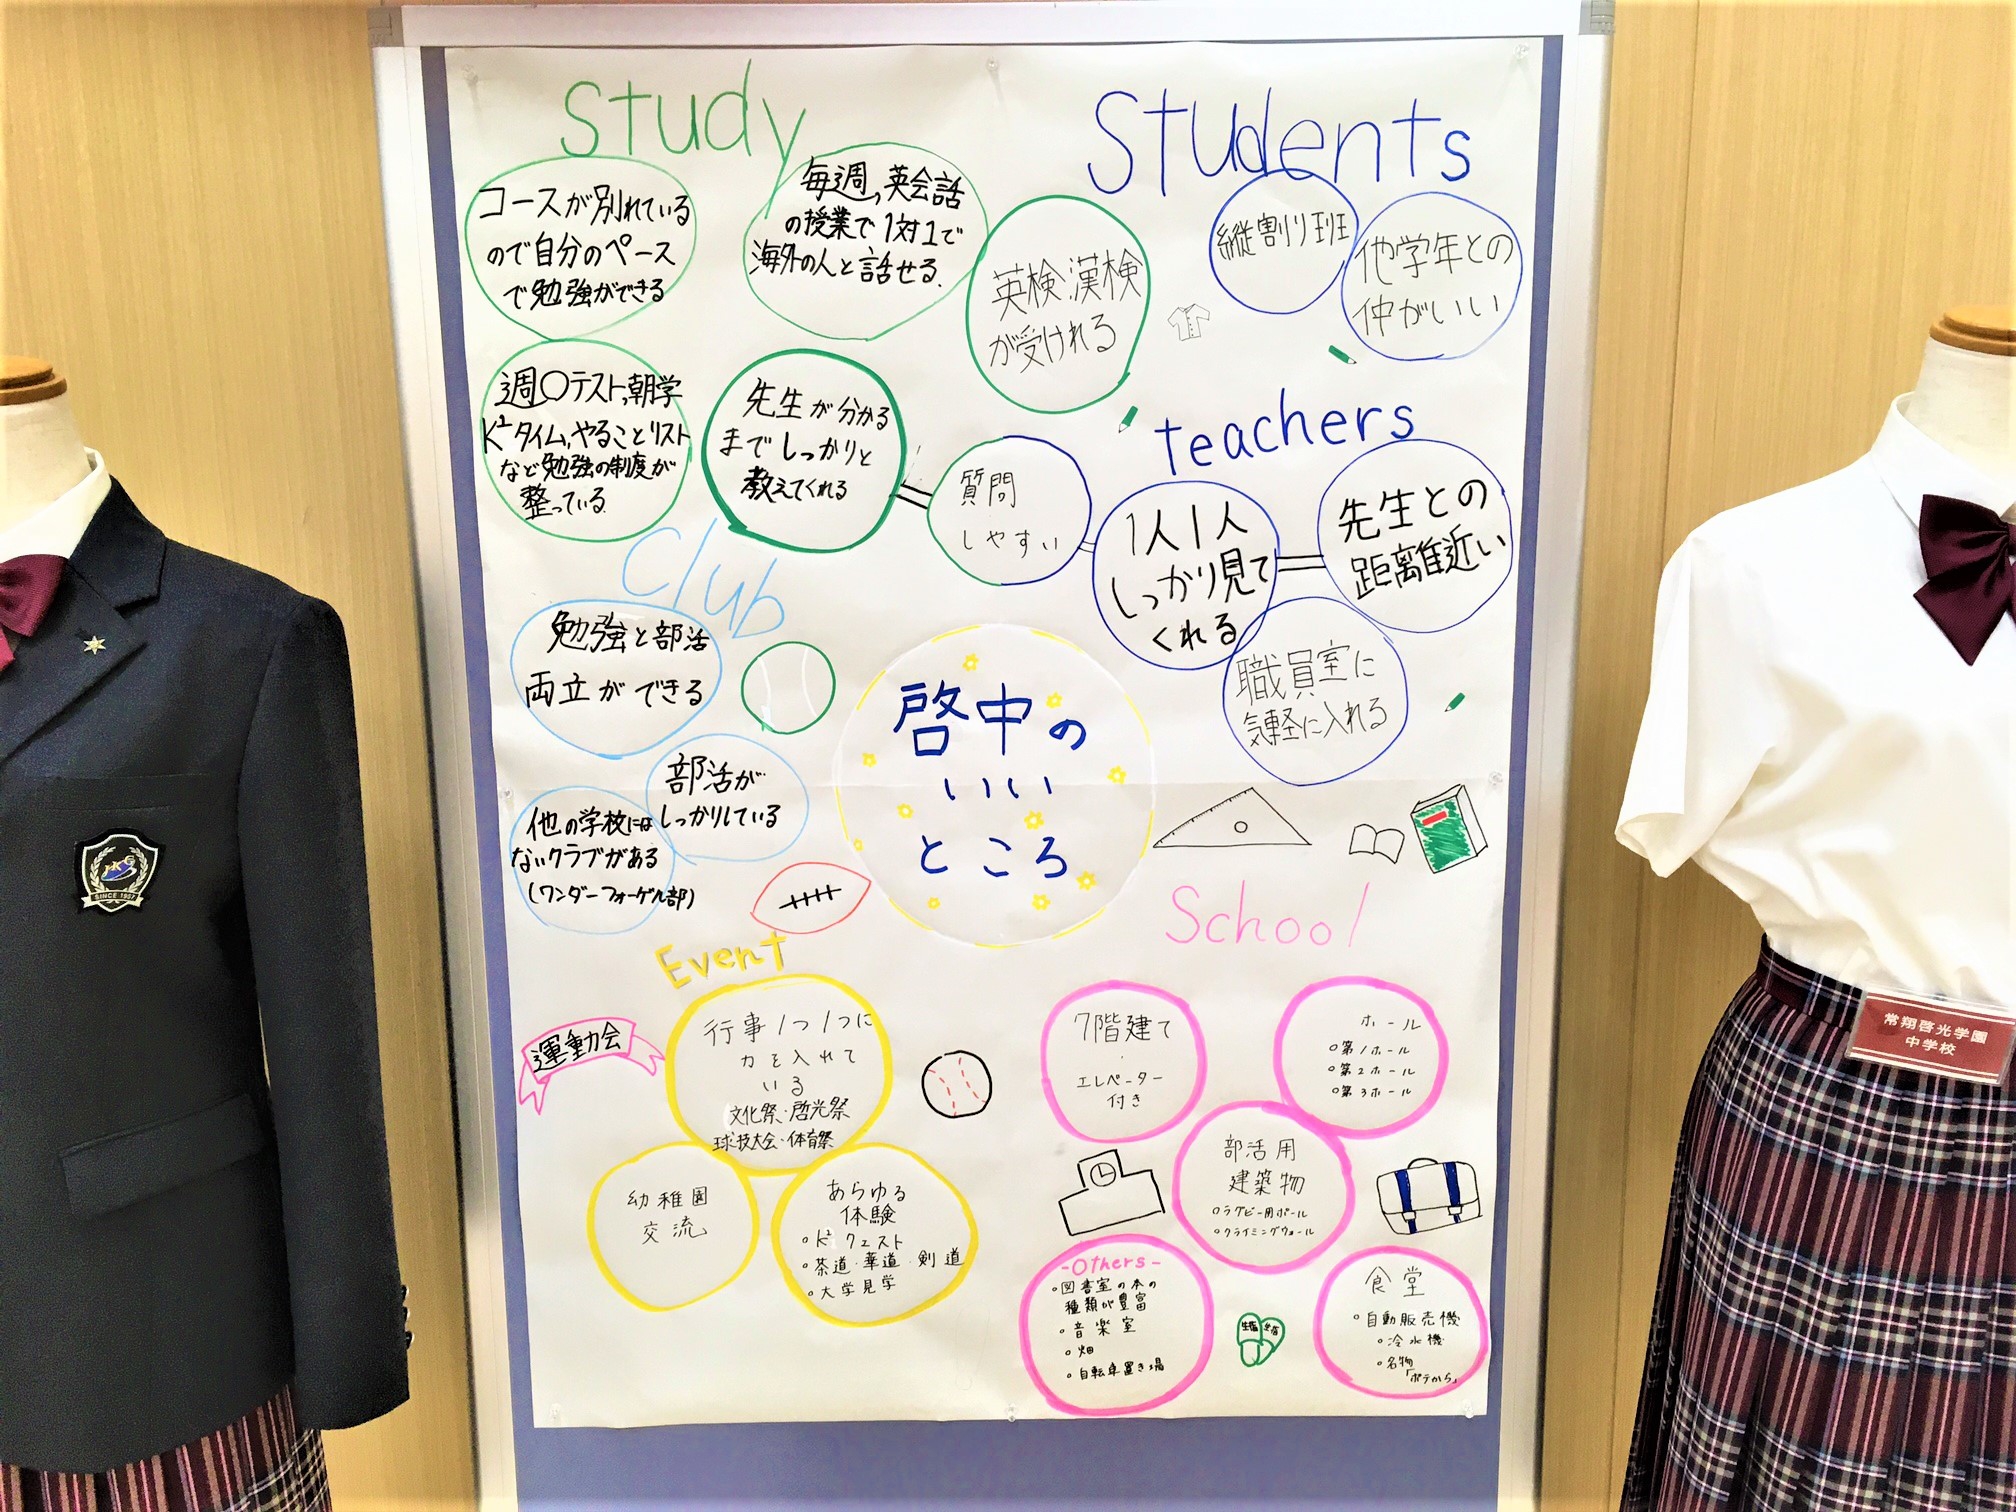 Study
コースが別れている
ので自分のペース
で勉強ができる
毎週,英会話
の授業で1対1で
海外の人と話せる.
英検.漢検
が受けれる
週〇テスト,朝学
K²タイム,やることリスト
など勉強の制度が
整っている.
先生が分かる
までしっかりと
教えてくれる
質問
しやすい
Students
縦割り班
他学年との
仲がいい
teachers
1人1人
しっかり見て
くれる
先生との
距離近い
職員室に
気軽に入れる
Club
勉強と部活
両立ができる
部活が
しっかりしている
他の学校には
ないクラブがある
(ワンダーフォーゲル部)
啓中の
いい
ところ
Event
運動会
行事1つ1つに
力を入れて
いる
文化祭・啓光祭
球技大会・体育祭
幼稚園
交流
あらゆる
体験
○K²クエスト
○茶道・華道・剣道
○大学見学
School
7階建て
エレベーター
付き
ホール
○第1ホール
○第2ホール
○第3ホール
部活用
建築物
○ラグビー用ポール
○クライミングウォール
-Others-
○図書室の本の
種類が豊富
○音楽室
○畑
○自転車置き場
食堂
○自動販売機
○冷水機
○名物
「ポテから」
SINCE 1957
常翔啓光学園
中学校